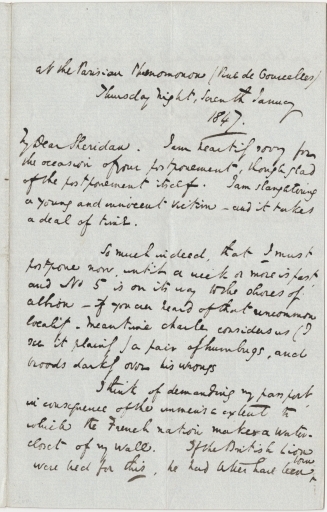 at the Parisian Phenomonone (Rue de Courcelles)
Thursday Night, Seventh January
1847.
My Dear Sheridan. I am heartily sorry for
the occasion of your postponement, though glad
of the postponement itself. I am slaughtering
a young and innocent victim - and it takes
a deal of time.
So much indeed, that I must
postpone now, until a week or more is past
and No 5 is on its way to the shores of
Albion - if you ever heard of that uncommon
locality. Meantime Charley considers us (I
see it plain) a pair of humbugs, and
broods darkly over his wrongs
I think of demanding my passport
in consequence of the immense extent to
which the French nation makes a water-
closet of my wall. If the British Lion
were bred for this, he had better have been